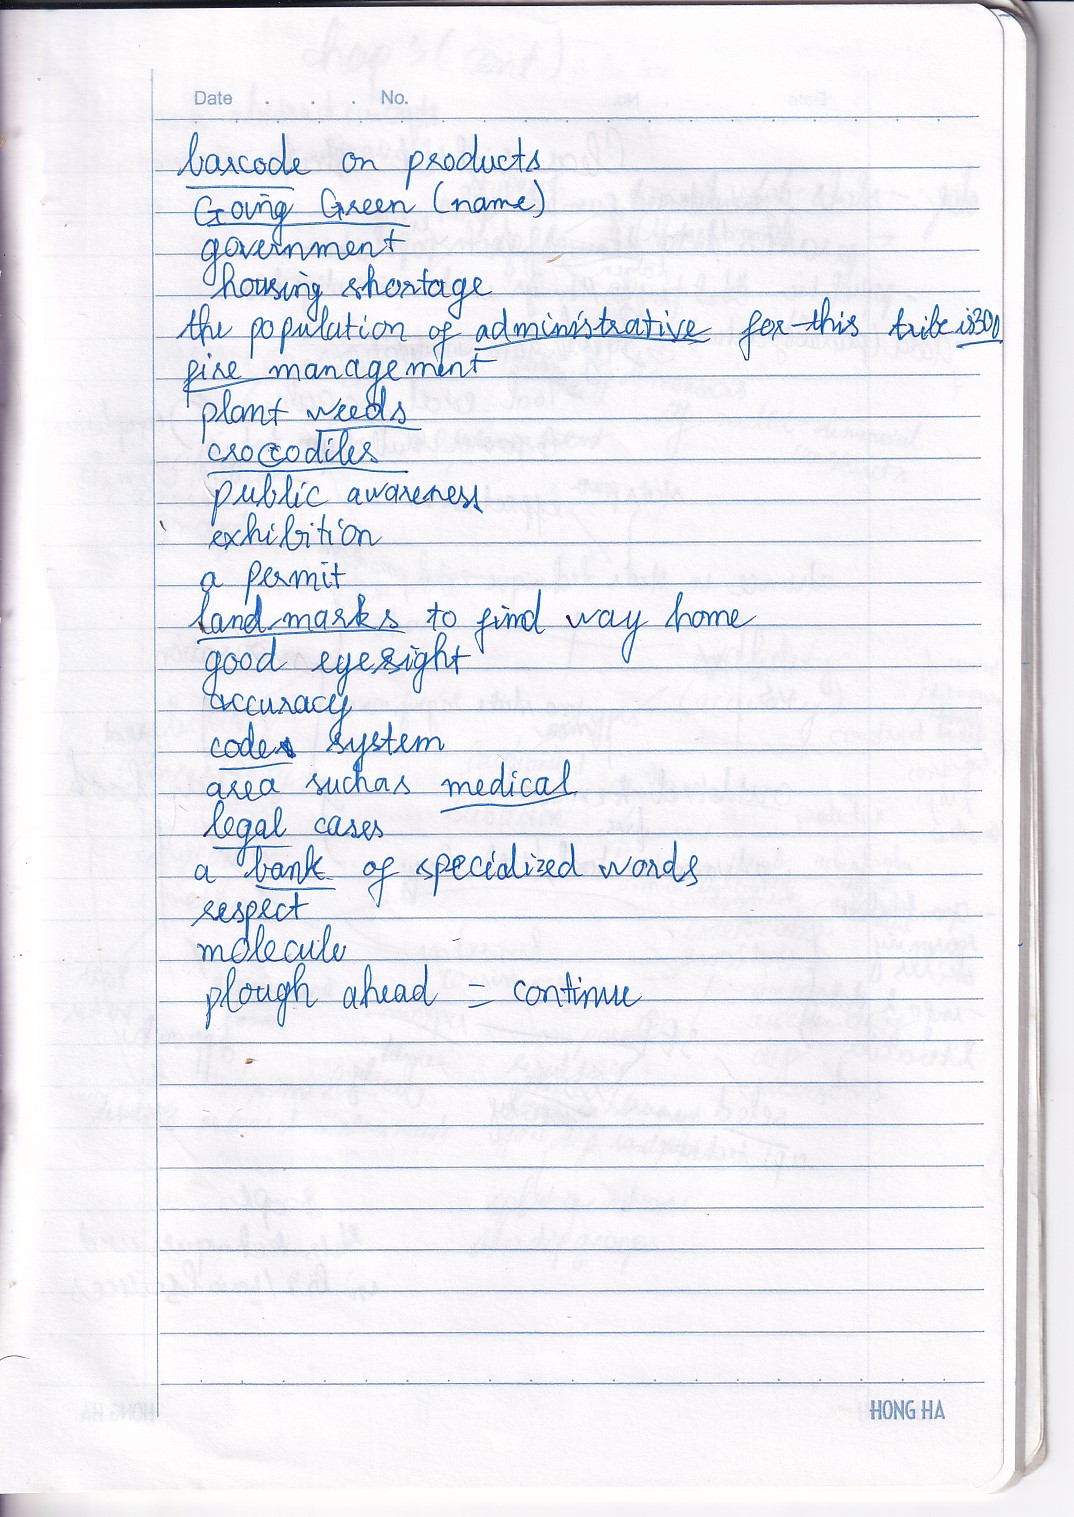 Date . . . No.
barcode on products
Going Green (name)
government
housing shortage
the population of administrative for this tribe is 300
fire management
plant weeds
crocodiles
public awareness
exhibition
a permit
landmarks to find way home
good eyesight
accuracy
codes system
area such as medical
legal cases
a bank of specialized words
respect
molecule
plough ahead = continue
HONG HA